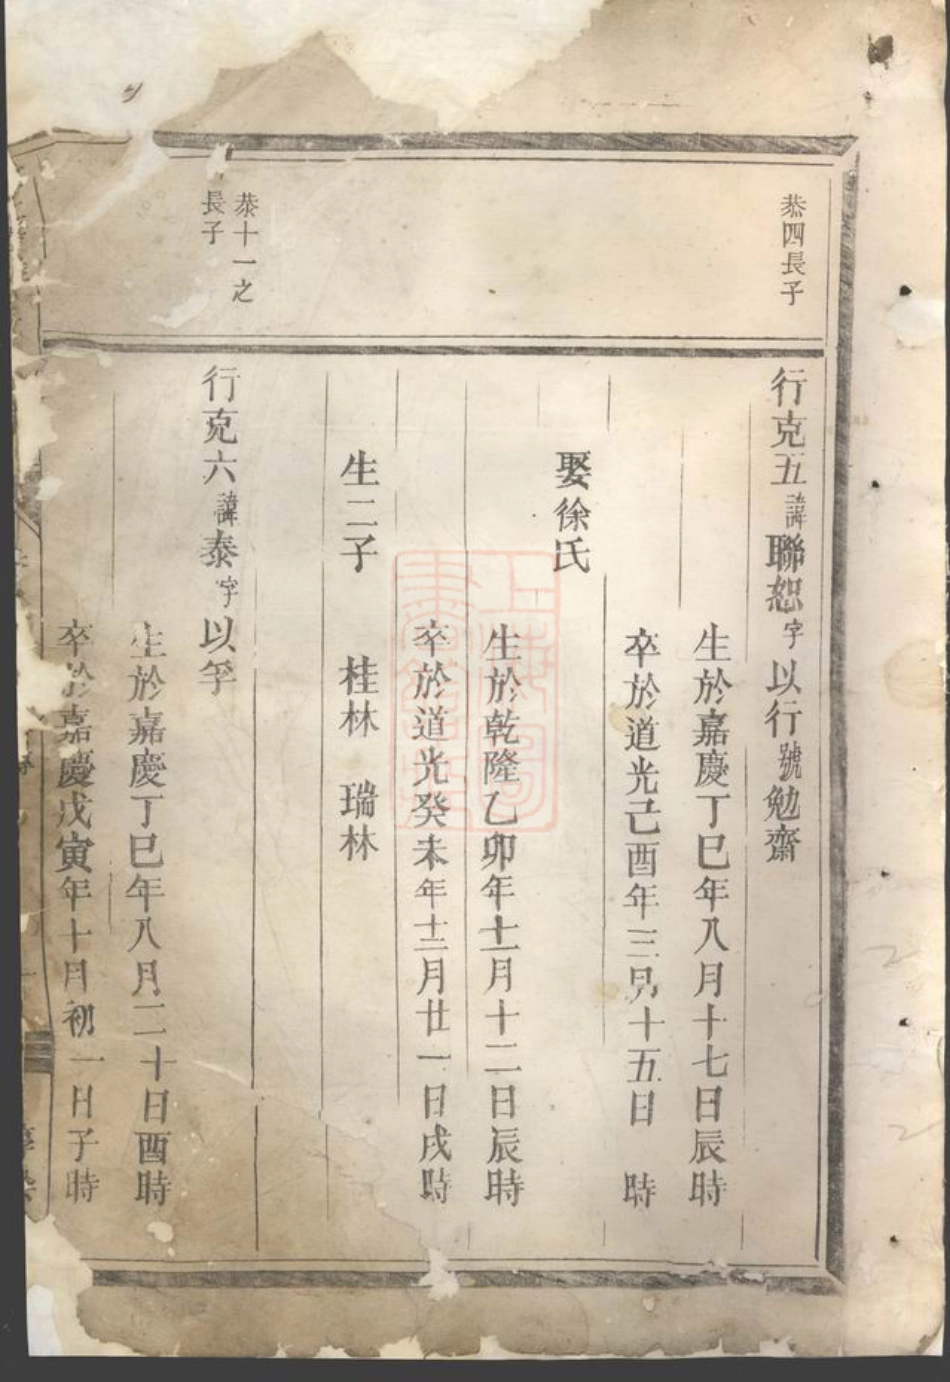 恭四長子
行克五諱聯恕字以行號勉齋
生於嘉慶丁巳年八月十七日辰時
卒於道光己酉年三月十五日　時
娶徐氏
生於乾隆乙卯年十一月十二日辰時
卒於道光癸未年十二月廿一日戌時
生二子　桂林　瑞林
恭十一之
長子
行克六諱泰字以孚
生於嘉慶丁巳年八月二十日酉時
卒於嘉慶戊寅年十月初一日子時